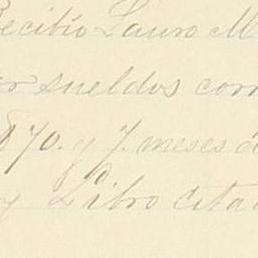 Recibio Lauro M
or sueldos corr
870. y 7. meses d
y Libro cita